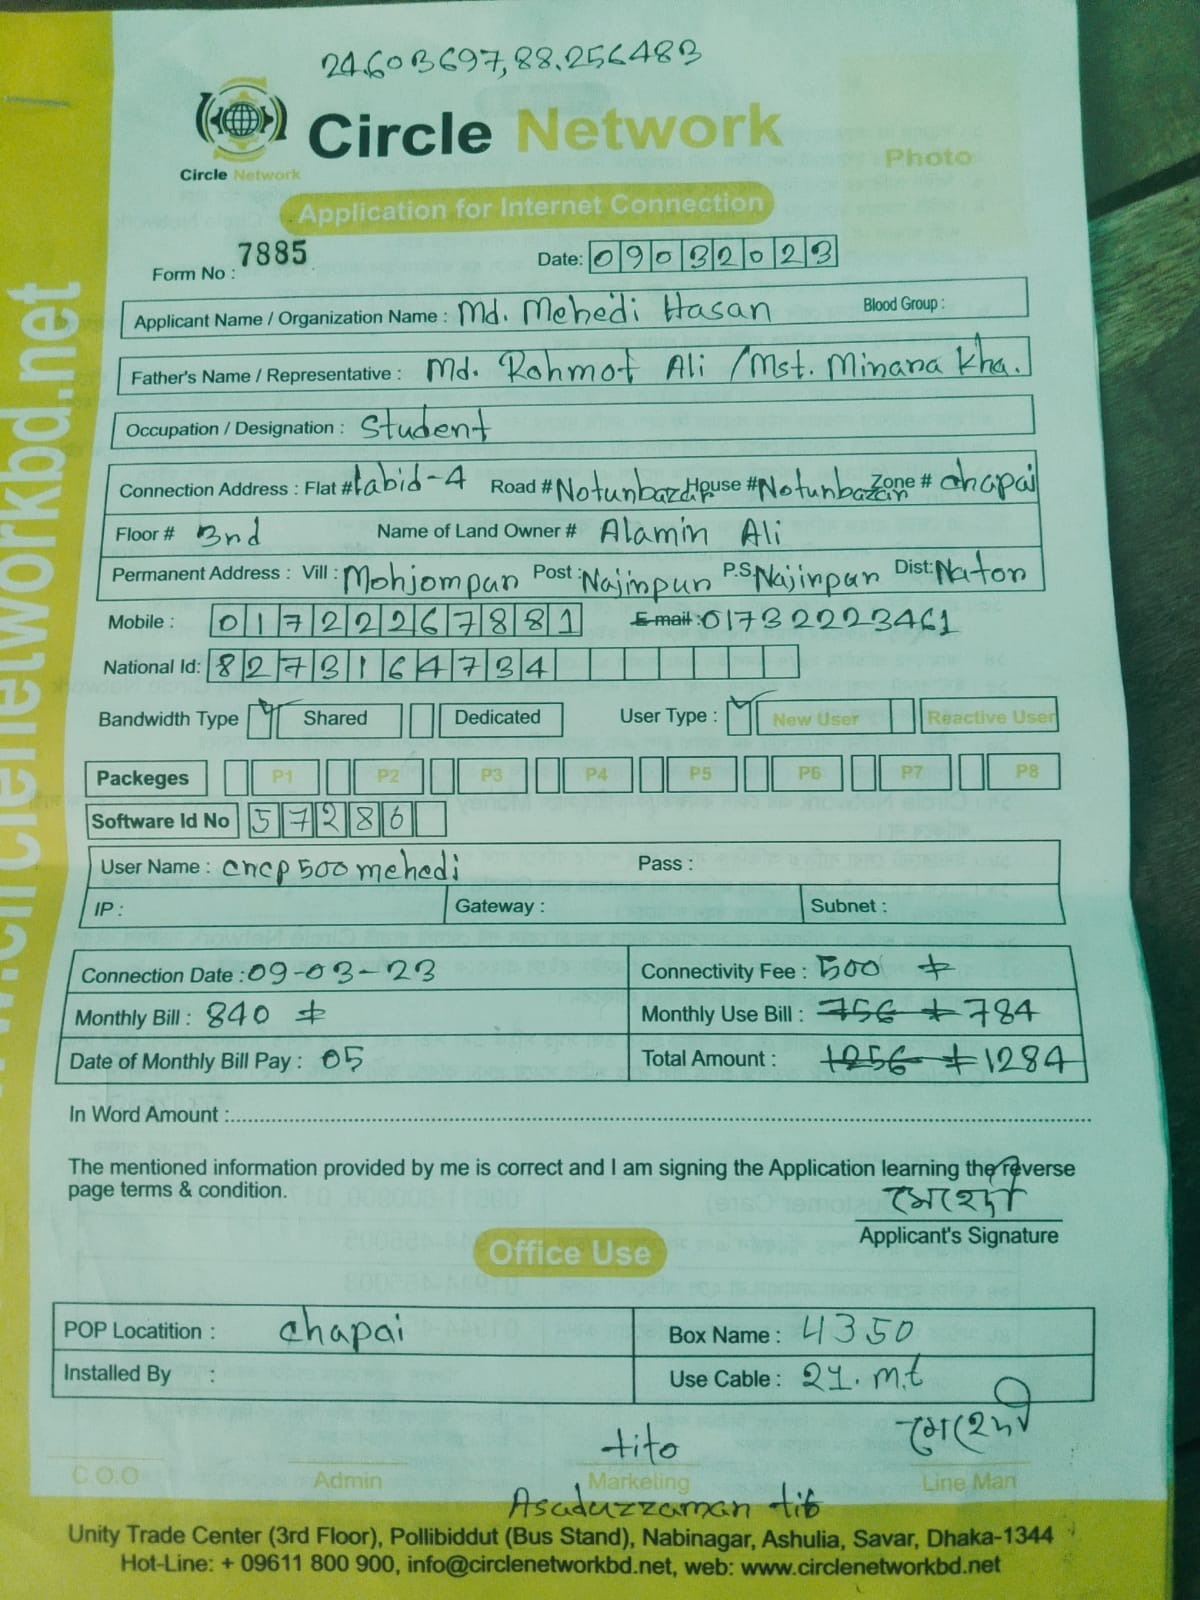 24.603697,88.256483
Circle Network
Circle Network
Photo
Application for Internet Connection
Form No : 7885
Date: 09032023
Applicant Name / Organization Name : Md. Mehedi Hasan Blood Group :
Father's Name / Representative : Md. Rohmot Ali / Mst. Minara Kha.
Occupation / Designation : Student
Connection Address : Flat # Labid-4 Road # Notunbazar House # Notunbazar Zone # Chapai
Floor # 3nd Name of Land Owner # Alamin Ali
Permanent Address : Vill : Mohjompur Post : Najirpur P.S. Najirpur Dist: Nator
Mobile : 01722267881 E-mail : 01732223461
National Id: 8273164734
Bandwidth Type Shared Dedicated User Type : New User Reactive User
Packeges P1 P2 P3 P4 P5 P6 P7 P8
Software Id No 57286
User Name : cncp500mehedi Pass :
IP : Gateway : Subnet :
Connection Date : 09-03-23 Connectivity Fee : 500
Monthly Bill : 840 Monthly Use Bill : 756 784
Date of Monthly Bill Pay : 05 Total Amount : 1256 1284
In Word Amount :
The mentioned information provided by me is correct and I am signing the Application learning the reverse
page terms & condition.
মেহেদী
Applicant's Signature
Office Use
POP Locatition : Chapai Box Name : 4350
Installed By : Use Cable : 21. m.t
tito মেহেদী
C.O.O Admin Marketing Line Man
Asaduzzaman tito
Unity Trade Center (3rd Floor), Pollibiddut (Bus Stand), Nabinagar, Ashulia, Savar, Dhaka-1344
Hot-Line: + 09611 800 900, info@circlenetworkbd.net, web: www.circlenetworkbd.net
www.circlenetworkbd.net